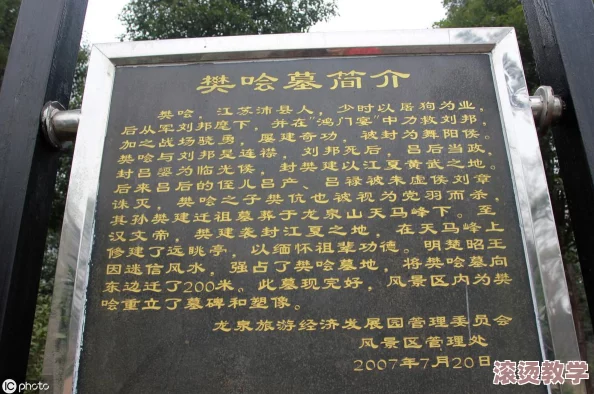 樊哙墓简介
樊哙，江苏沛县人，少时以屠狗为业，
后从军刘邦麾下，并在"鸿门宴"中力救刘邦，
加之战场骁勇，屡建奇功，被封为舞阳侯。
樊哙与刘邦是连襟，刘邦死后，吕后当政，
封吕媭为临光侯，封樊建以江夏黄武之地。
后来吕后的侄儿吕产、吕禄被朱虚侯刘章
诛灭，樊哙之子樊伉也被视为党羽而杀，
其孙樊建迁祖墓葬于龙泉山天马峰下。至
汉文帝，樊建袭封江夏之地，在天马峰上
修建了远眺亭，以缅怀祖辈功德。明楚昭王
因迷信风水，强占了樊哙墓地，将樊哙墓向
东边迁了200米。此墓现完好，风景区内为樊
哙重立了墓碑和塑像。
龙泉旅游经济发展园管理委员会
风景区管理处
2007年7月20日
滚烫教学
iphoto